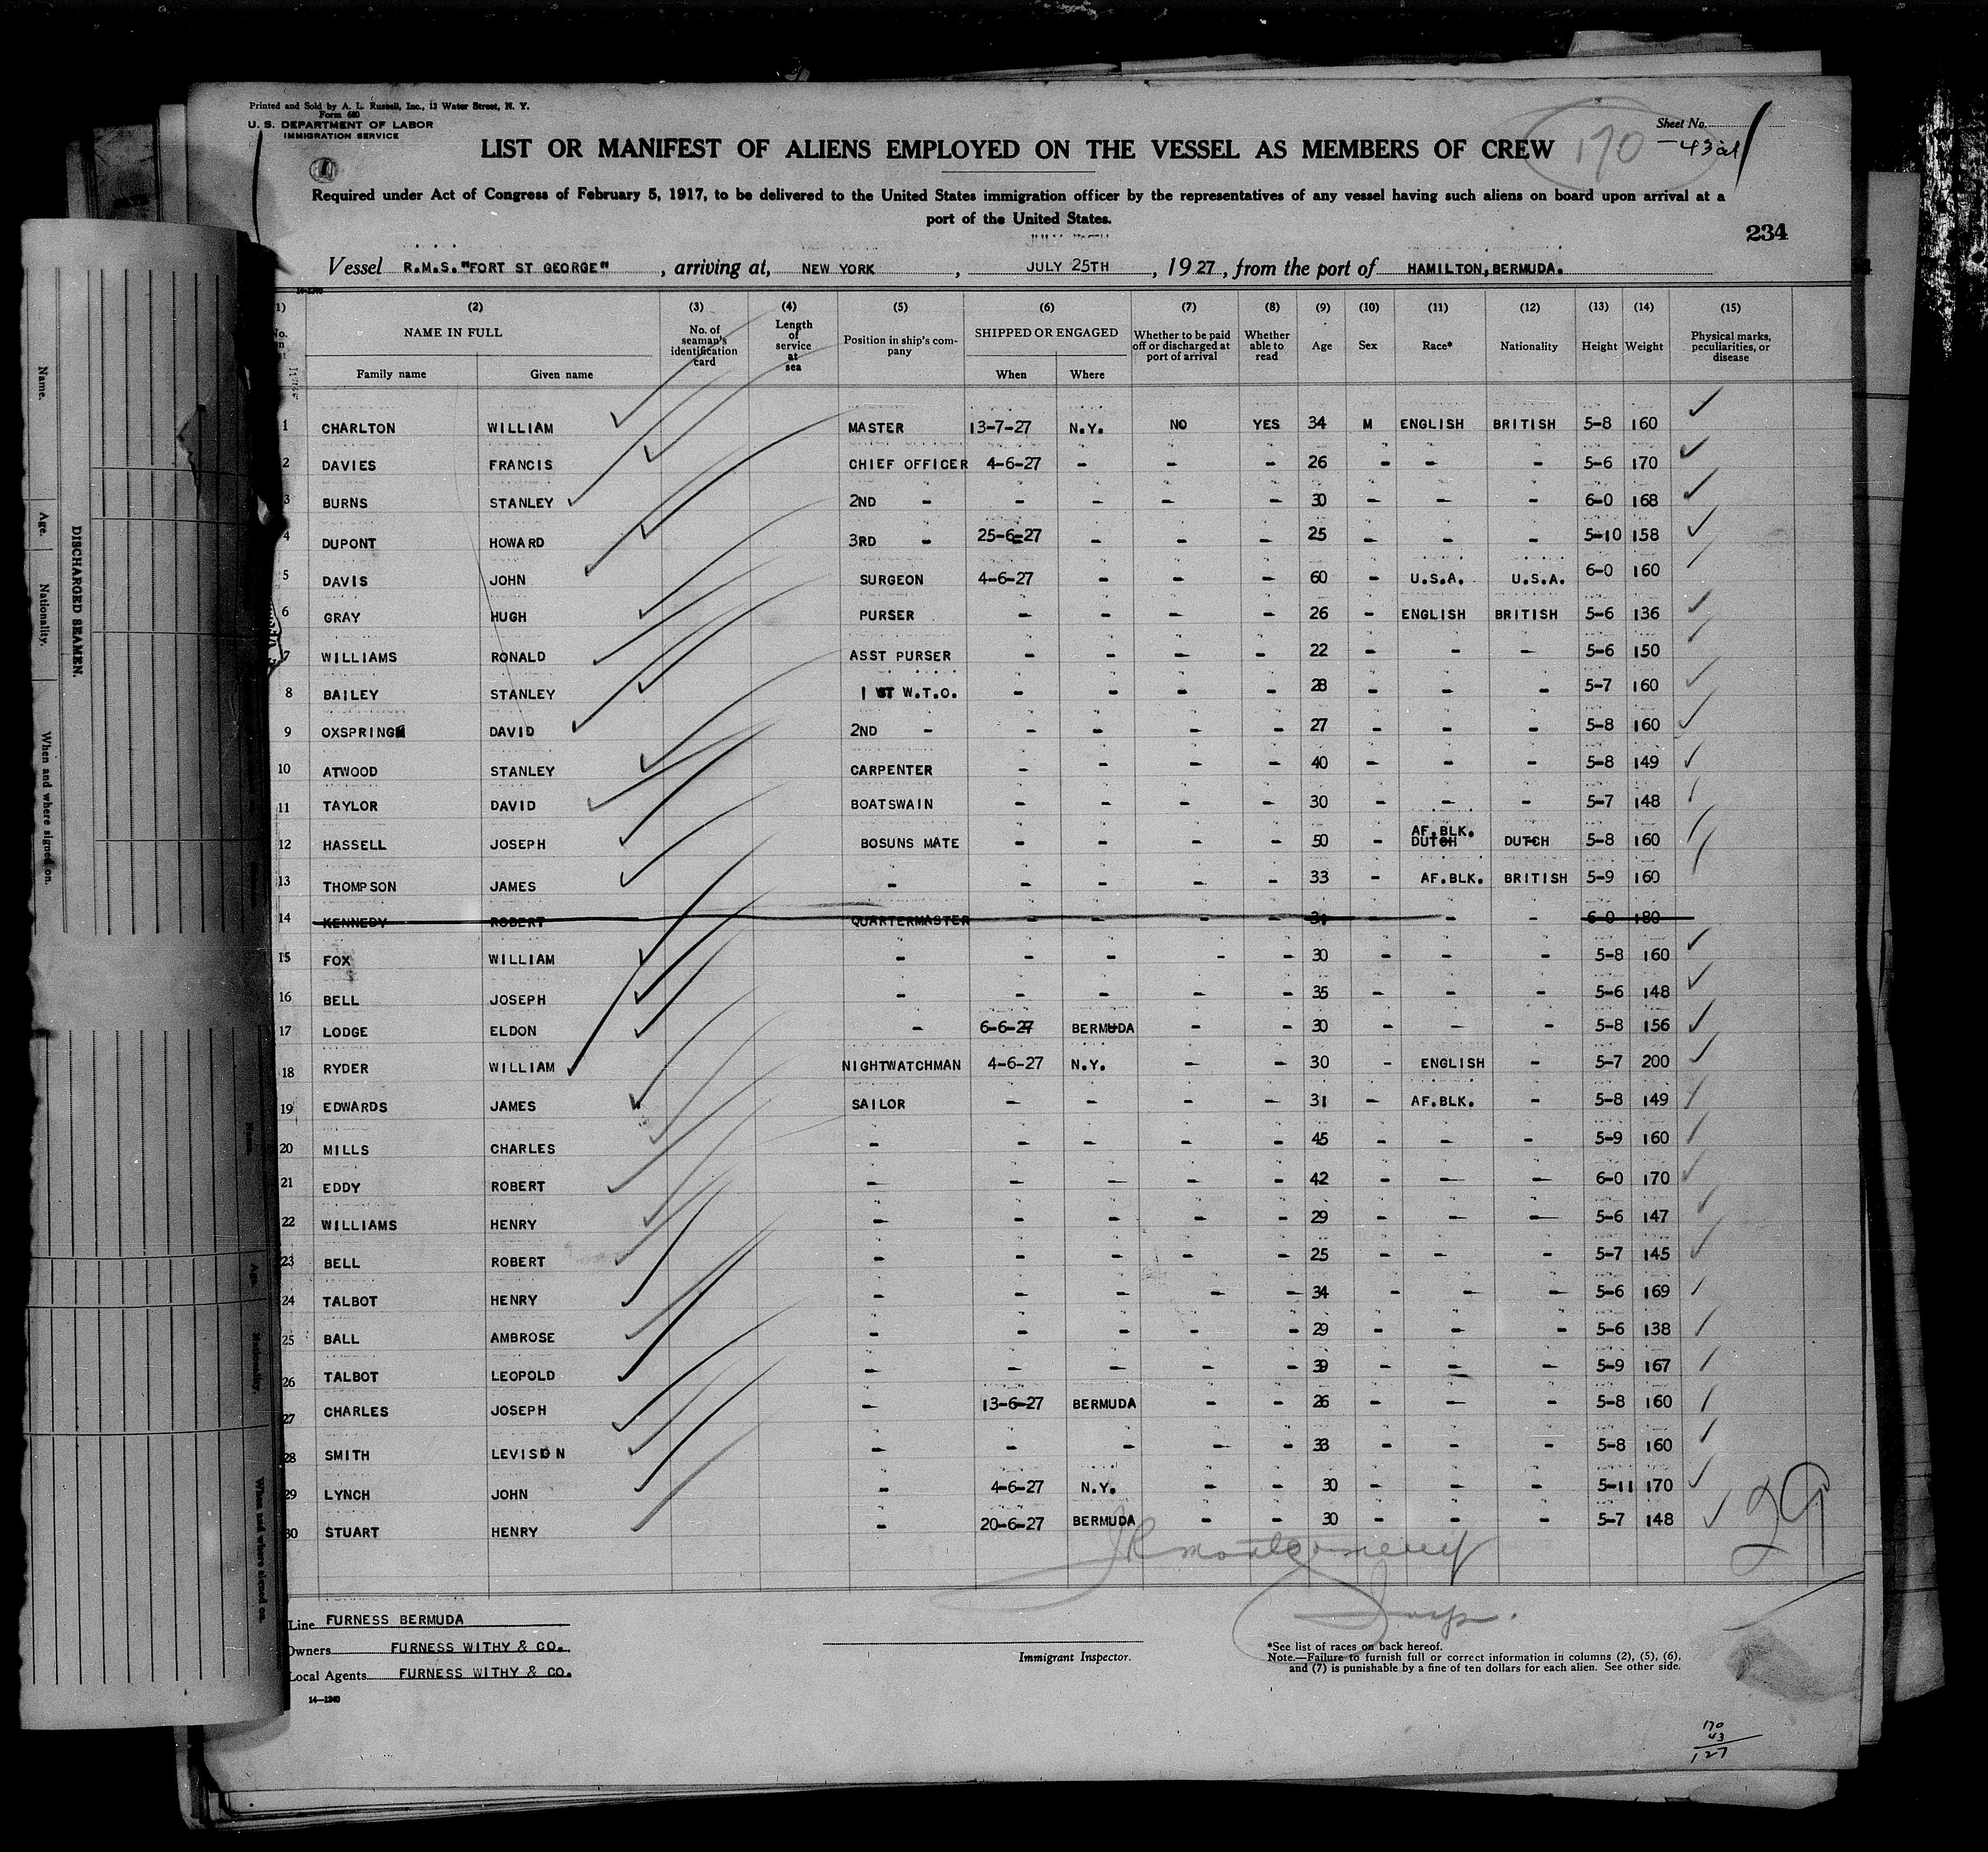 Printed and Sold by A. L. Russell, Inc., 13 Water Street, N. Y.
Form 680
U. S. DEPARTMENT OF LABOR
IMMIGRATION SERVICE
Sheet No. 1
170
-43 al
LIST OR MANIFEST OF ALIENS EMPLOYED ON THE VESSEL AS MEMBERS OF CREW
Required under Act of Congress of February 5, 1917, to be delivered to the United States immigration officer by the representatives of any vessel having such aliens on board upon arrival at a
port of the United States.
234
Vessel R.M.S."FORT ST GEORGE", arriving at, NEW YORK, JULY 25TH, 1927, from the port of HAMILTON, BERMUDA.
14-1240
(1) (2) (3) (4) (5) (6) (7) (8) (9) (10) (11) (12) (13) (14) (15)
NAME IN FULL
Family name Given name
No. of seaman's identification card
Length of service at sea
Position in ship's company
SHIPPED OR ENGAGED
When Where
Whether to be paid off or discharged at port of arrival
Whether able to read
Age Sex Race* Nationality Height Weight
Physical marks, peculiarities, or disease
1 CHARLTON WILLIAM MASTER 13-7-27 N.Y. NO YES 34 M ENGLISH BRITISH 5-8 160
2 DAVIES FRANCIS CHIEF OFFICER 4-6-27 - - - 26 - - - 5-6 170
3 BURNS STANLEY 2ND - - - - - 30 - - - 6-0 168
4 DUPONT HOWARD 3RD - 25-6-27 - - - 25 - - - 5-10 158
5 DAVIS JOHN SURGEON 4-6-27 - - - 60 - U.S.A. U.S.A. 6-0 160
6 GRAY HUGH PURSER - - - - 26 - ENGLISH BRITISH 5-6 136
7 WILLIAMS RONALD ASST PURSER - - - - 22 - - - 5-6 150
8 BAILEY STANLEY 1 ST W.T.O. - - - - 28 - - - 5-7 160
9 OXSPRING DAVID 2ND - - - - - 27 - - - 5-8 160
10 ATWOOD STANLEY CARPENTER - - - - 40 - - - 5-8 149
11 TAYLOR DAVID BOATSWAIN - - - - 30 - - - 5-7 148
12 HASSELL JOSEPH BOSUNS MATE - - - - 50 - AF.BLK. DUTCH DUTCH 5-8 160
13 THOMPSON JAMES - - - - - 33 - AF.BLK. BRITISH 5-9 160
14 KENNEDY ROBERT QUARTERMASTER - - - - 31 - - - 6-0 180
15 FOX WILLIAM - - - - - 30 - - - 5-8 160
16 BELL JOSEPH - - - - - 35 - - - 5-6 148
17 LODGE ELDON - 6-6-27 BERMUDA - - 30 - - - 5-8 156
18 RYDER WILLIAM NIGHTWATCHMAN 4-6-27 N.Y. - - 30 - ENGLISH - 5-7 200
19 EDWARDS JAMES SAILOR - - - - 31 - AF.BLK. - 5-8 149
20 MILLS CHARLES - - - - - 45 - - - 5-9 160
21 EDDY ROBERT - - - - - 42 - - - 6-0 170
22 WILLIAMS HENRY - - - - - 29 - - - 5-6 147
23 BELL ROBERT - - - - - 25 - - - 5-7 145
24 TALBOT HENRY - - - - - 34 - - - 5-6 169
25 BALL AMBROSE - - - - - 29 - - - 5-6 138
26 TALBOT LEOPOLD - - - - - 39 - - - 5-9 167
27 CHARLES JOSEPH - 13-6-27 BERMUDA - - 26 - - - 5-8 160
28 SMITH LEVISION - - - - - 33 - - - 5-8 160
29 LYNCH JOHN - 4-6-27 N.Y. - - 30 - - - 5-11 170
30 STUART HENRY - 20-6-27 BERMUDA - - 30 - - - 5-7 148
29
JR Montgomery
Insp.
Line FURNESS BERMUDA
Owners FURNESS WITHY & CO.
Local Agents FURNESS WITHY & CO.
14-1240
Immigrant Inspector.
*See list of races on back hereof.
Note.—Failure to furnish full or correct information in columns (2), (5), (6),
and (7) is punishable by a fine of ten dollars for each alien. See other side.
170
43
127
DISCHARGED SEAMEN.
Name.
Age.
Nationality.
When and where signed on.
Name.
Age.
Nationality.
When and where signed on.